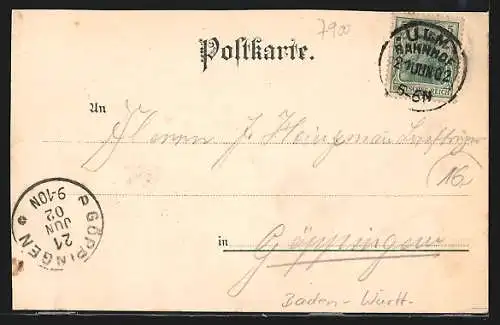 7900
Postkarte.
ULM
BAHNHOF
21 JUN 02
5-6N
An
Herrn J.
16
P. GÖPPINGEN
21
JUN
02
9-10N
in
Göppingen
Baden-Württ.